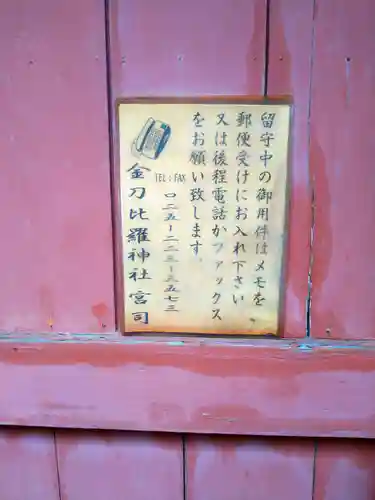 留守中の御用件はメモを
郵便受けにお入れ下さい
又は後程電話かファックス
をお願い致します。
TEL・FAX
〇二五-二二三-三五七三
金刀比羅神社宮司